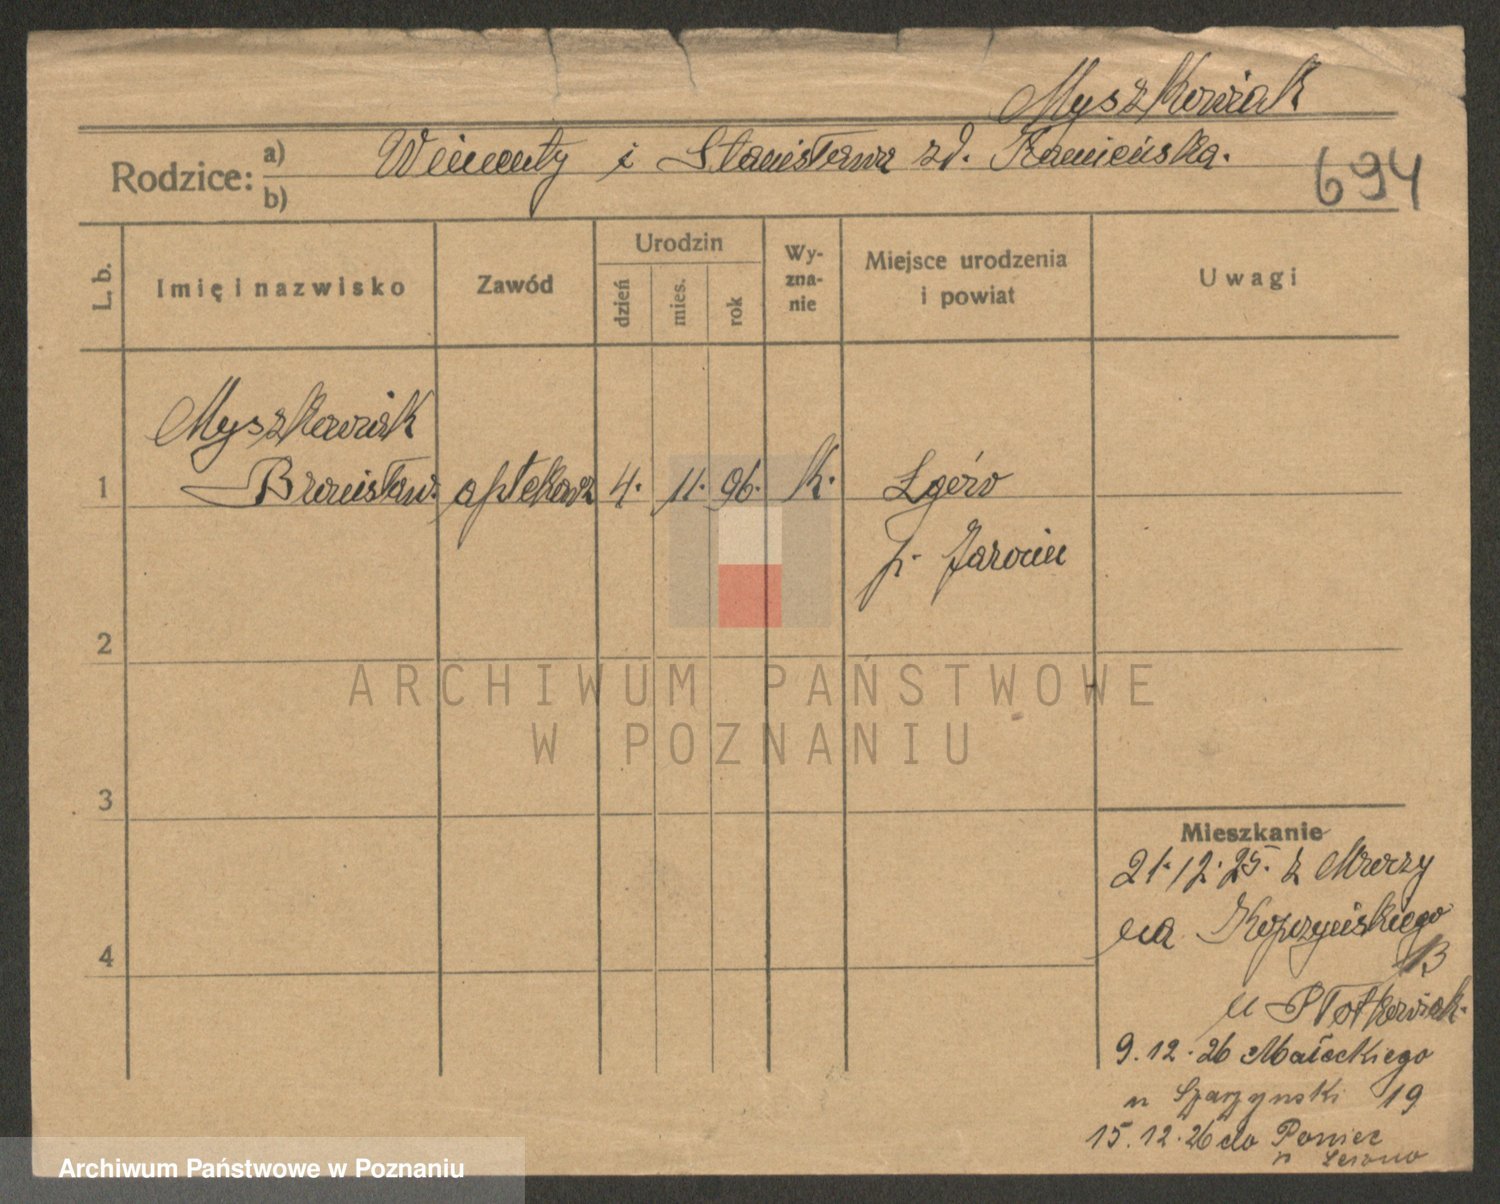 Myszkowiak
Rodzice: a) Wincenty i Stanisława zd. Kamieńska.
b)
694
L. b.
Imię i nazwisko
Zawód
Urodzin
dzień
mies.
rok
Wy-
zna-
nie
Miejsce urodzenia
i powiat
Uwagi
Myszkowiak
1 Bronisław. aptekarz 4. 11. 96. k. Lgów
p. Jarocin
2
3
4
ARCHIWUM PAŃSTWOWE
W POZNANIU
Mieszkanie
21.12.25. z Mroczy
na Kopczyńskiego
13
u Płotkowiak.
9.12.26 Małeckiego
u 19
15.12.26 do Poniec
Archiwum Państwowe w Poznaniu